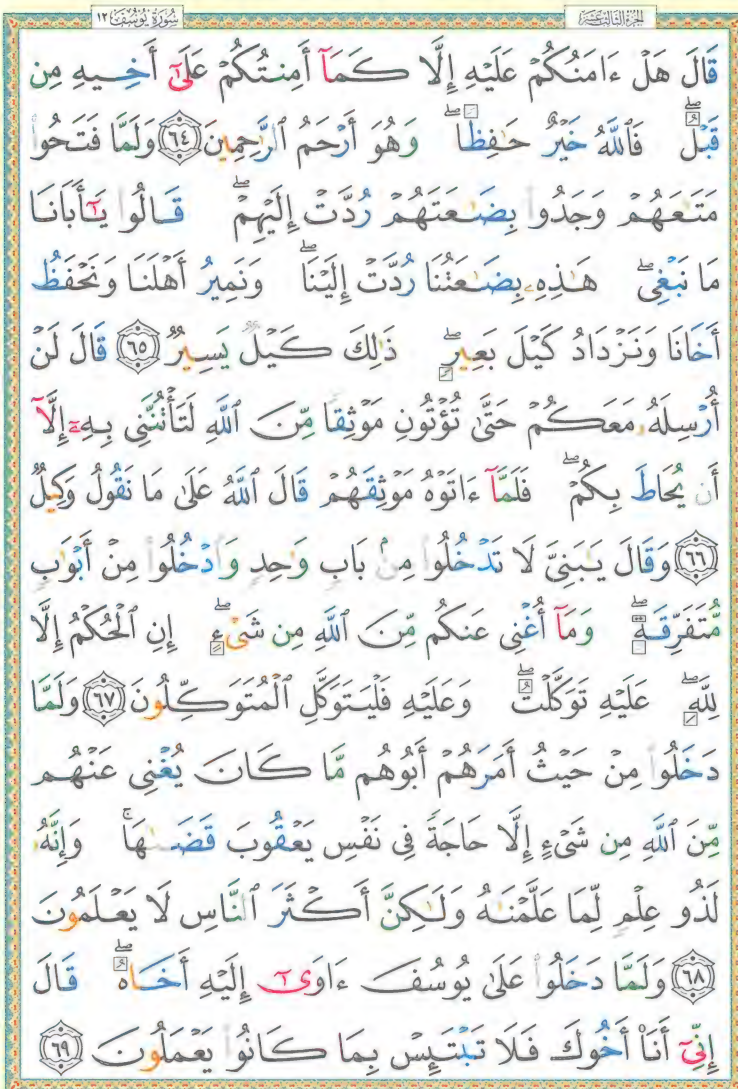 سُورَةُ يُوسُفَ ١٢
الجُزْءُ الثَّالِثَ عَشَرَ
قَالَ هَلْ ءَامَنُكُمْ عَلَيْهِ إِلَّا كَمَآ أَمِنتُكُمْ عَلَىٰٓ أَخِيهِ مِن
قَبْلُ ۖ فَٱللَّهُ خَيْرٌ حَٰفِظًا ۖ وَهُوَ أَرْحَمُ ٱلرَّٰحِمِينَ ٦٤ وَلَمَّا فَتَحُوا۟
مَتَٰعَهُمْ وَجَدُوا۟ بِضَٰعَتَهُمْ رُدَّتْ إِلَيْهِمْ ۖ قَالُوا۟ يَٰٓأَبَانَا
مَا نَبْغِى ۖ هَٰذِهِۦ بِضَٰعَتُنَا رُدَّتْ إِلَيْنَا ۖ وَنَمِيرُ أَهْلَنَا وَنَحْفَظُ
أَخَانَا وَنَزْدَادُ كَيْلَ بَعِيرٍ ۖ ذَٰلِكَ كَيْلٌ يَسِيرٌ ٦٥ قَالَ لَنْ
أُرْسِلَهُۥ مَعَكُمْ حَتَّىٰ تُؤْتُونِ مَوْثِقًا مِّنَ ٱللَّهِ لَتَأْتُنَّنِى بِهِۦٓ إِلَّآ
أَن يُحَاطَ بِكُمْ ۖ فَلَمَّآ ءَاتَوْهُ مَوْثِقَهُمْ قَالَ ٱللَّهُ عَلَىٰ مَا نَقُولُ وَكِيلٌ
٦٦ وَقَالَ يَٰبَنِىَّ لَا تَدْخُلُوا۟ مِنۢ بَابٍ وَٰحِدٍ وَٱدْخُلُوا۟ مِنْ أَبْوَٰبٍ
مُّتَفَرِّقَةٍ ۖ وَمَآ أُغْنِى عَنكُم مِّنَ ٱللَّهِ مِن شَىْءٍ ۖ إِنِ ٱلْحُكْمُ إِلَّا
لِلَّهِ ۖ عَلَيْهِ تَوَكَّلْتُ ۖ وَعَلَيْهِ فَلْيَتَوَكَّلِ ٱلْمُتَوَكِّلُونَ ٦٧ وَلَمَّا
دَخَلُوا۟ مِنْ حَيْثُ أَمَرَهُمْ أَبُوهُم مَّا كَانَ يُغْنِى عَنْهُم
مِّنَ ٱللَّهِ مِن شَىْءٍ إِلَّا حَاجَةً فِى نَفْسِ يَعْقُوبَ قَضَىٰهَا ۚ وَإِنَّهُۥ
لَذُو عِلْمٍ لِّمَا عَلَّمْنَٰهُ وَلَٰكِنَّ أَكْثَرَ ٱلنَّاسِ لَا يَعْلَمُونَ
٦٨ وَلَمَّا دَخَلُوا۟ عَلَىٰ يُوسُفَ ءَاوَىٰٓ إِلَيْهِ أَخَاهُ ۖ قَالَ
إِنِّىٓ أَنَا۠ أَخُوكَ فَلَا تَبْتَئِسْ بِمَا كَانُوا۟ يَعْمَلُونَ ٦٩